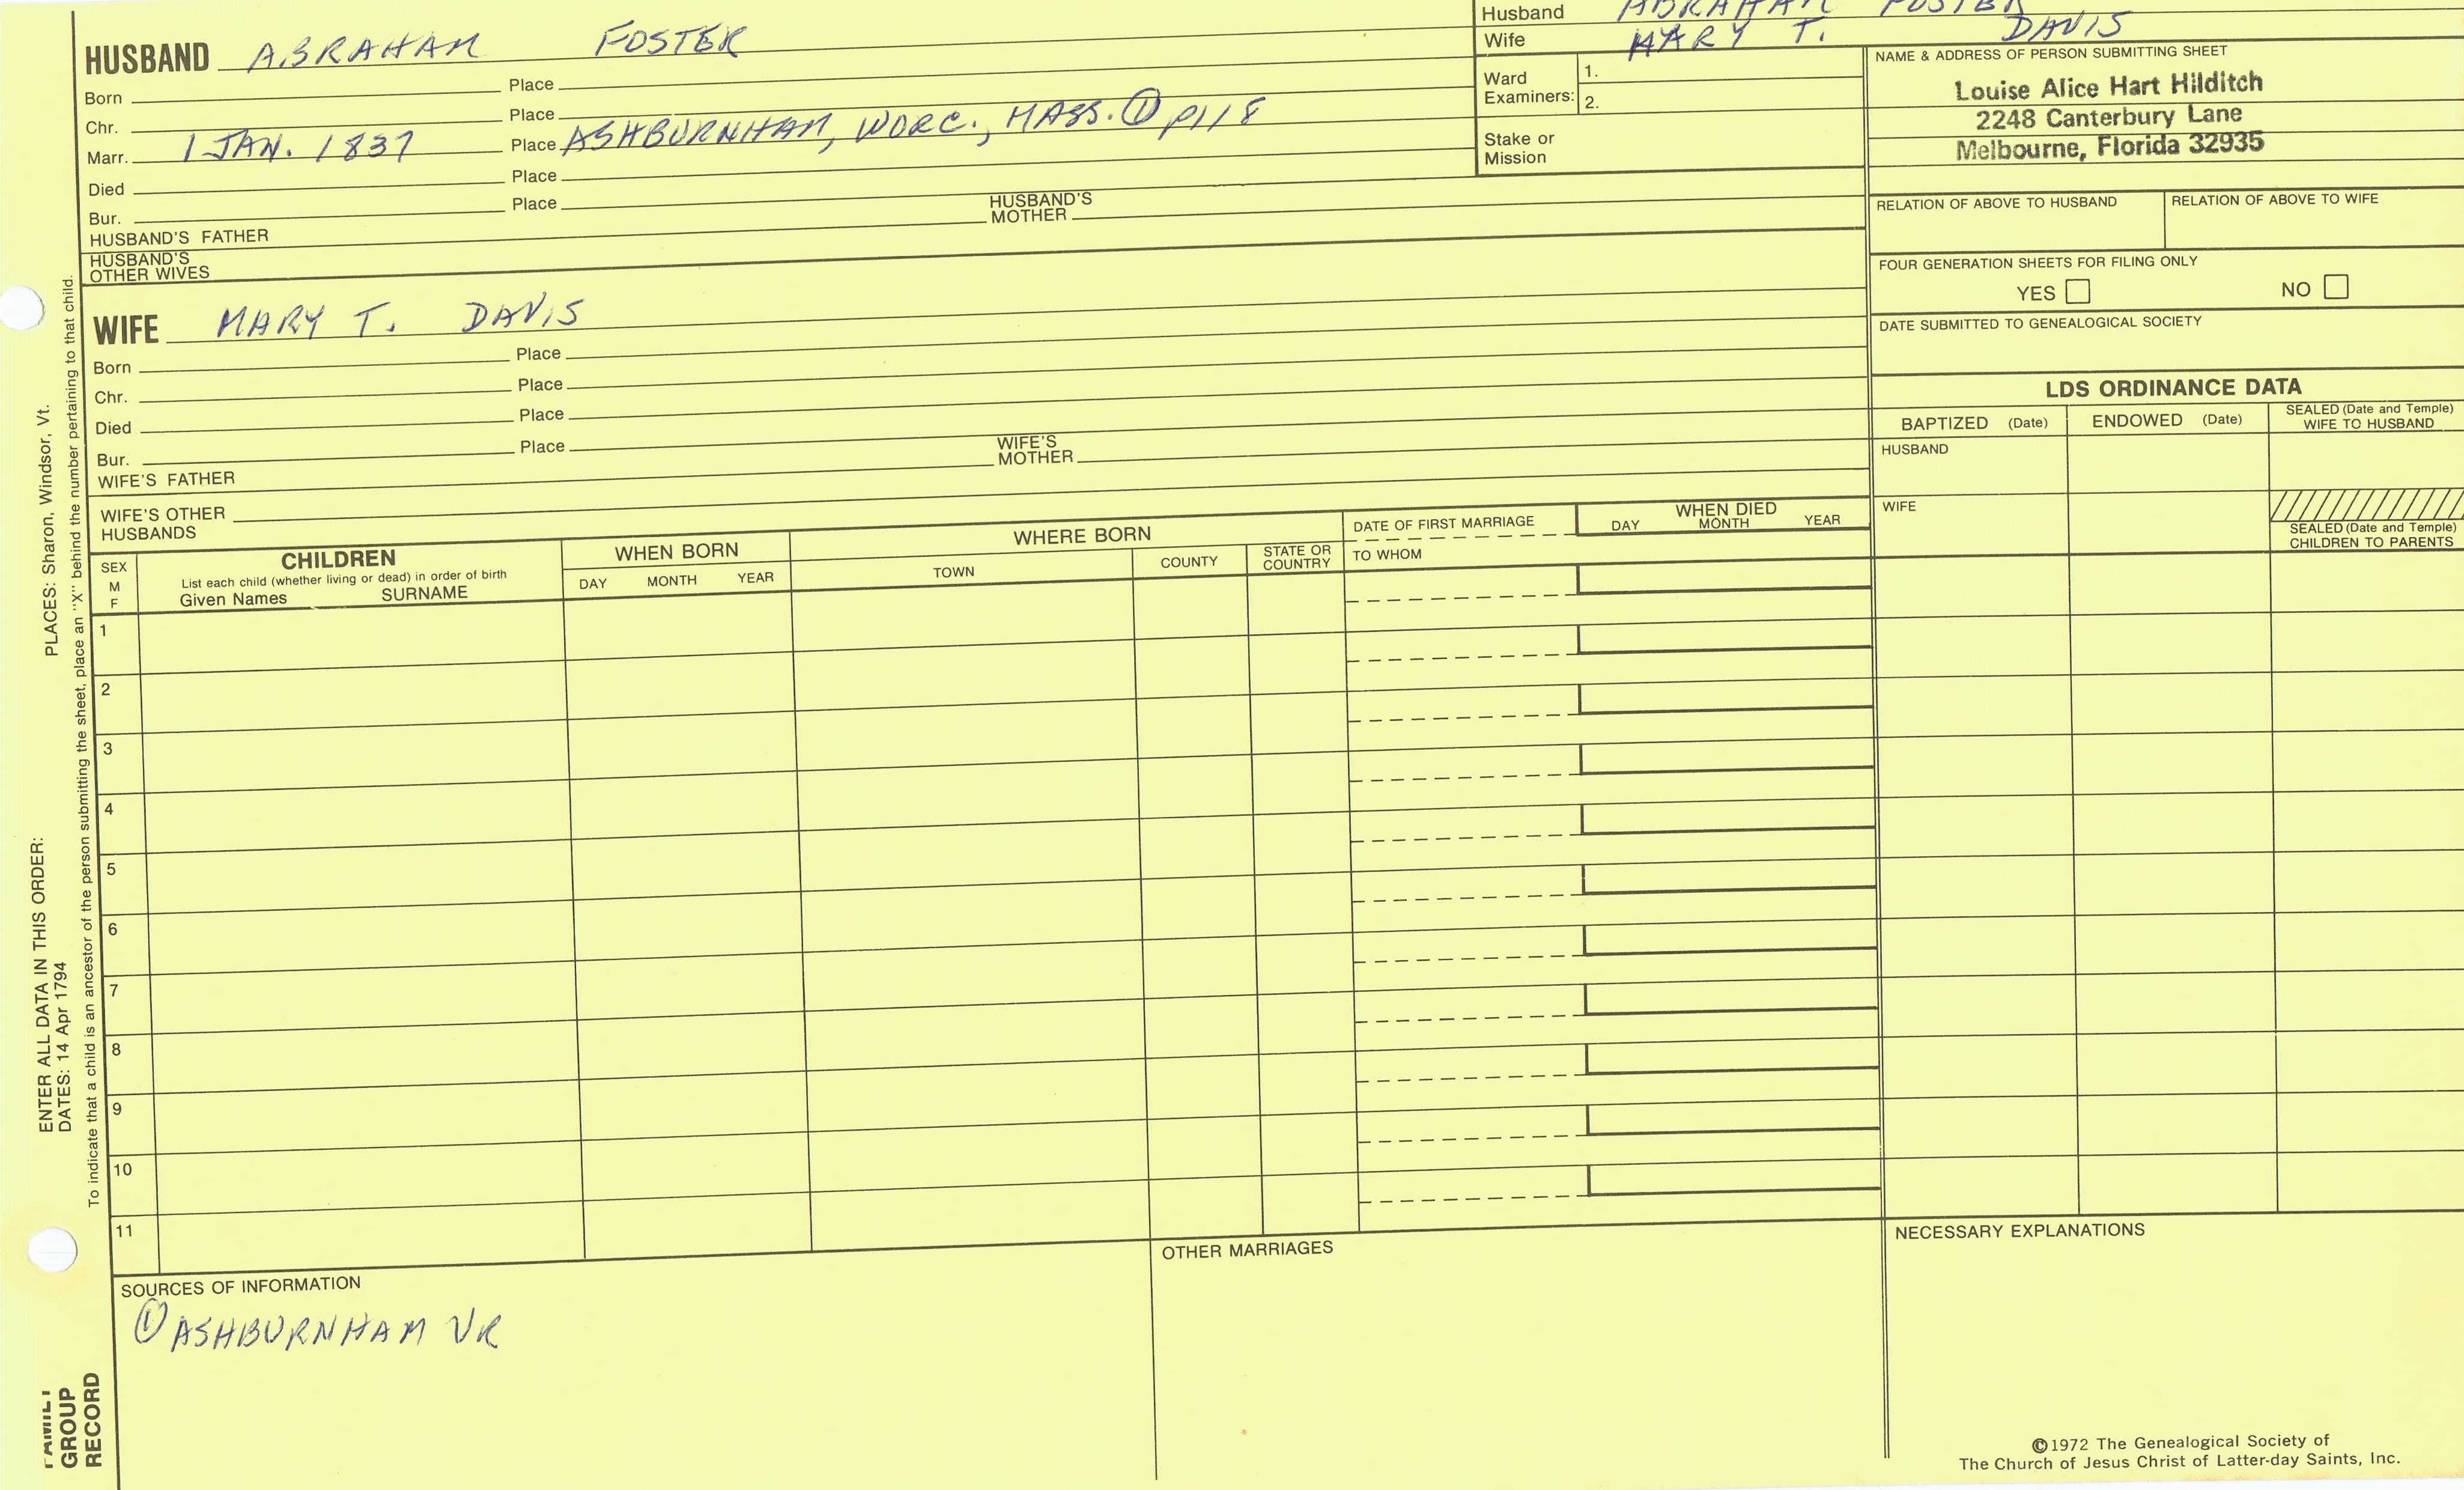 HUSBAND ABRAHAM FOSTER
Born Place
Chr. Place
Marr. 1 JAN. 1837 Place ASHBURNHAM, WORC., MASS. ① P118
Died Place
Bur. Place
HUSBAND'S FATHER HUSBAND'S MOTHER
HUSBAND'S OTHER WIVES
Husband ABRAHAM FOSTER
Wife MARY T. DAVIS
Ward Examiners: 1.
2.
Stake or Mission
NAME & ADDRESS OF PERSON SUBMITTING SHEET
Louise Alice Hart Hilditch
2248 Canterbury Lane
Melbourne, Florida 32935
RELATION OF ABOVE TO HUSBAND RELATION OF ABOVE TO WIFE
FOUR GENERATION SHEETS FOR FILING ONLY
YES NO
DATE SUBMITTED TO GENEALOGICAL SOCIETY
WIFE MARY T. DAVIS
Born Place
Chr. Place
Died Place
Bur. Place
WIFE'S FATHER WIFE'S MOTHER
WIFE'S OTHER HUSBANDS
LDS ORDINANCE DATA
BAPTIZED (Date) ENDOWED (Date) SEALED (Date and Temple) WIFE TO HUSBAND
HUSBAND
WIFE
SEALED (Date and Temple) CHILDREN TO PARENTS
SEX M F
CHILDREN
List each child (whether living or dead) in order of birth
Given Names SURNAME
WHEN BORN
DAY MONTH YEAR
WHERE BORN
TOWN COUNTY STATE OR COUNTRY
DATE OF FIRST MARRIAGE
TO WHOM
WHEN DIED
DAY MONTH YEAR
1
2
3
4
5
6
7
8
9
10
11
SOURCES OF INFORMATION
① ASHBURNHAM VR
OTHER MARRIAGES
NECESSARY EXPLANATIONS
©1972 The Genealogical Society of
The Church of Jesus Christ of Latter-day Saints, Inc.
ENTER ALL DATA IN THIS ORDER:
DATES: 14 Apr 1794 PLACES: Sharon, Windsor, Vt.
To indicate that a child is an ancestor of the person submitting the sheet, place an "X" behind the number pertaining to that child.
FAMILY
GROUP
RECORD